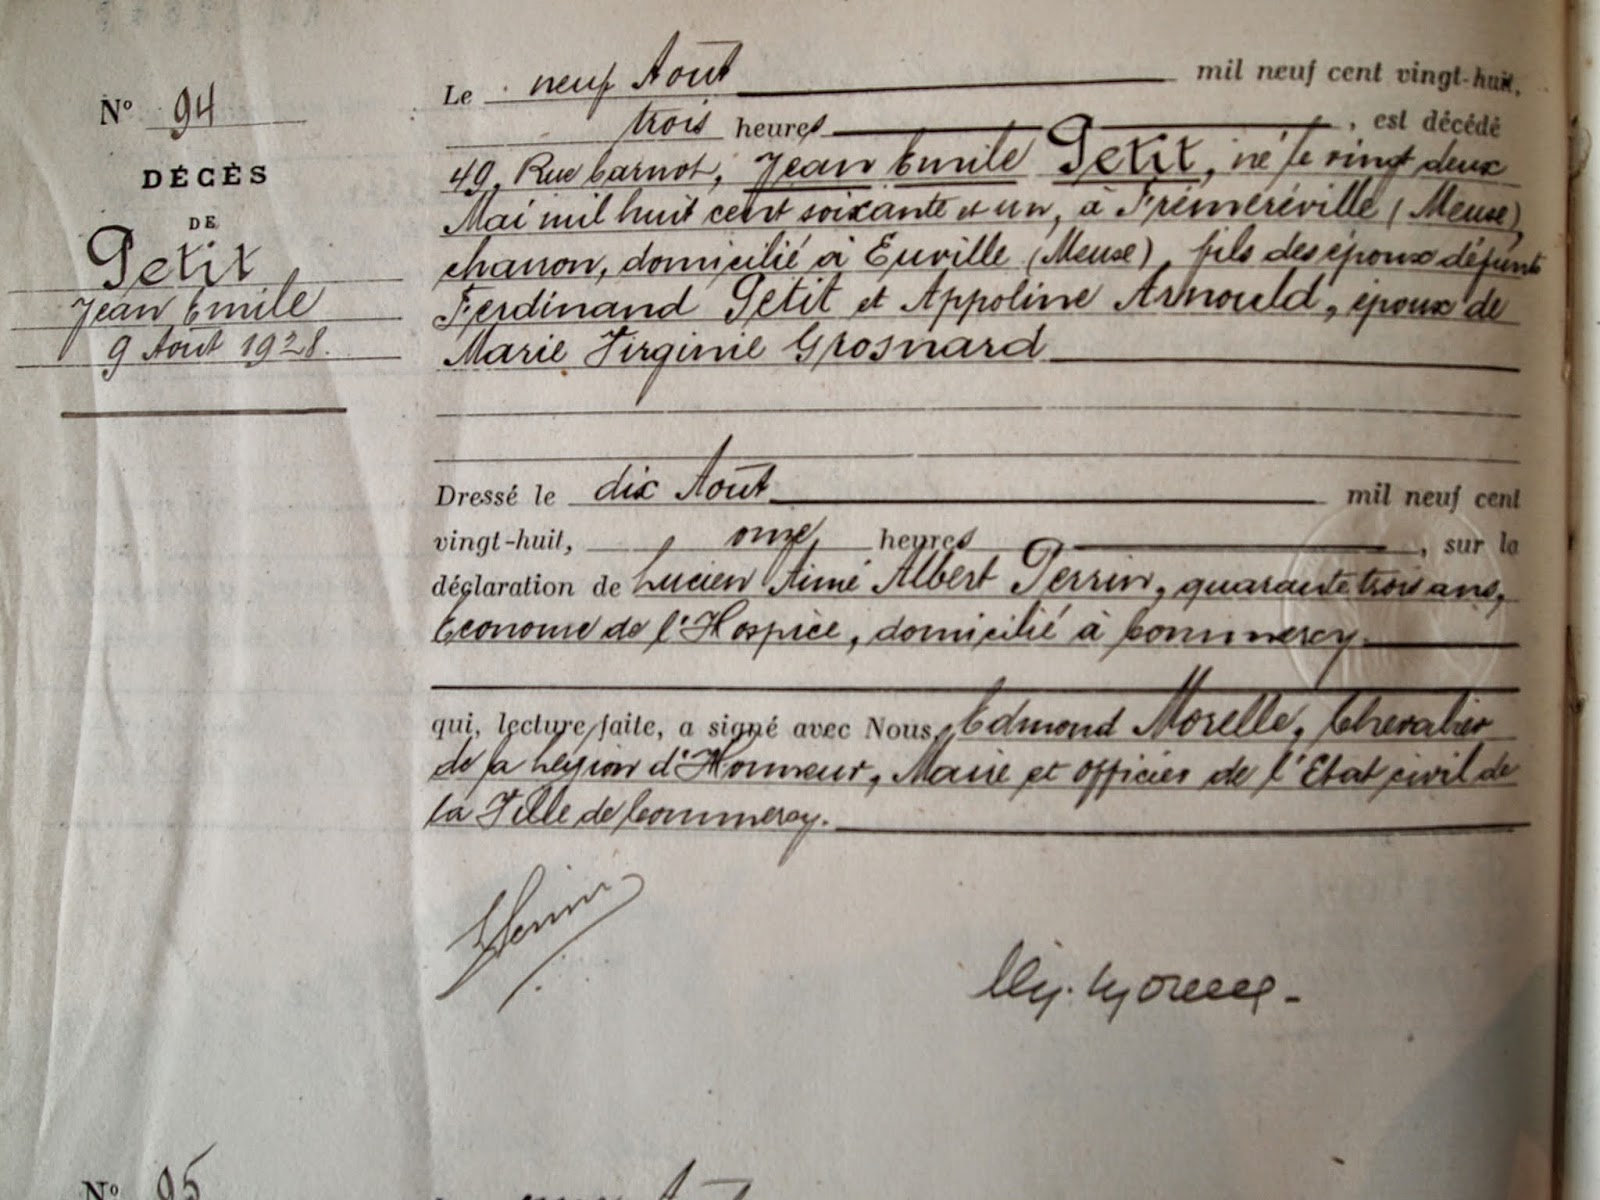 N° 94
DÉCÈS
DE
Petit
Jean Emile
9 Aout 1928.
Le neuf Août mil neuf cent vingt-huit,
trois heures, est décédé
49, Rue Carnot, Jean Emile Petit, né le vingt deux
Mai mil huit cent soixante et un, à Frémeréville (Meuse),
charron, domicilié à Euville (Meuse), fils des époux défunts
Ferdinand Petit et Appoline Arnould, époux de
Marie Virginie Grosnard
Dressé le dix Août mil neuf cent
vingt-huit, onze heures, sur la
déclaration de Lucien Aimé Albert Perrin, quarante trois ans,
Econome de l'Hospice, domicilié à Commercy.
qui, lecture faite, a signé avec Nous, Edmond Morelle, Chevalier
de la Légion d'Honneur, Maire et officier de l'Etat civil de
la Ville de Commercy.
N° 95